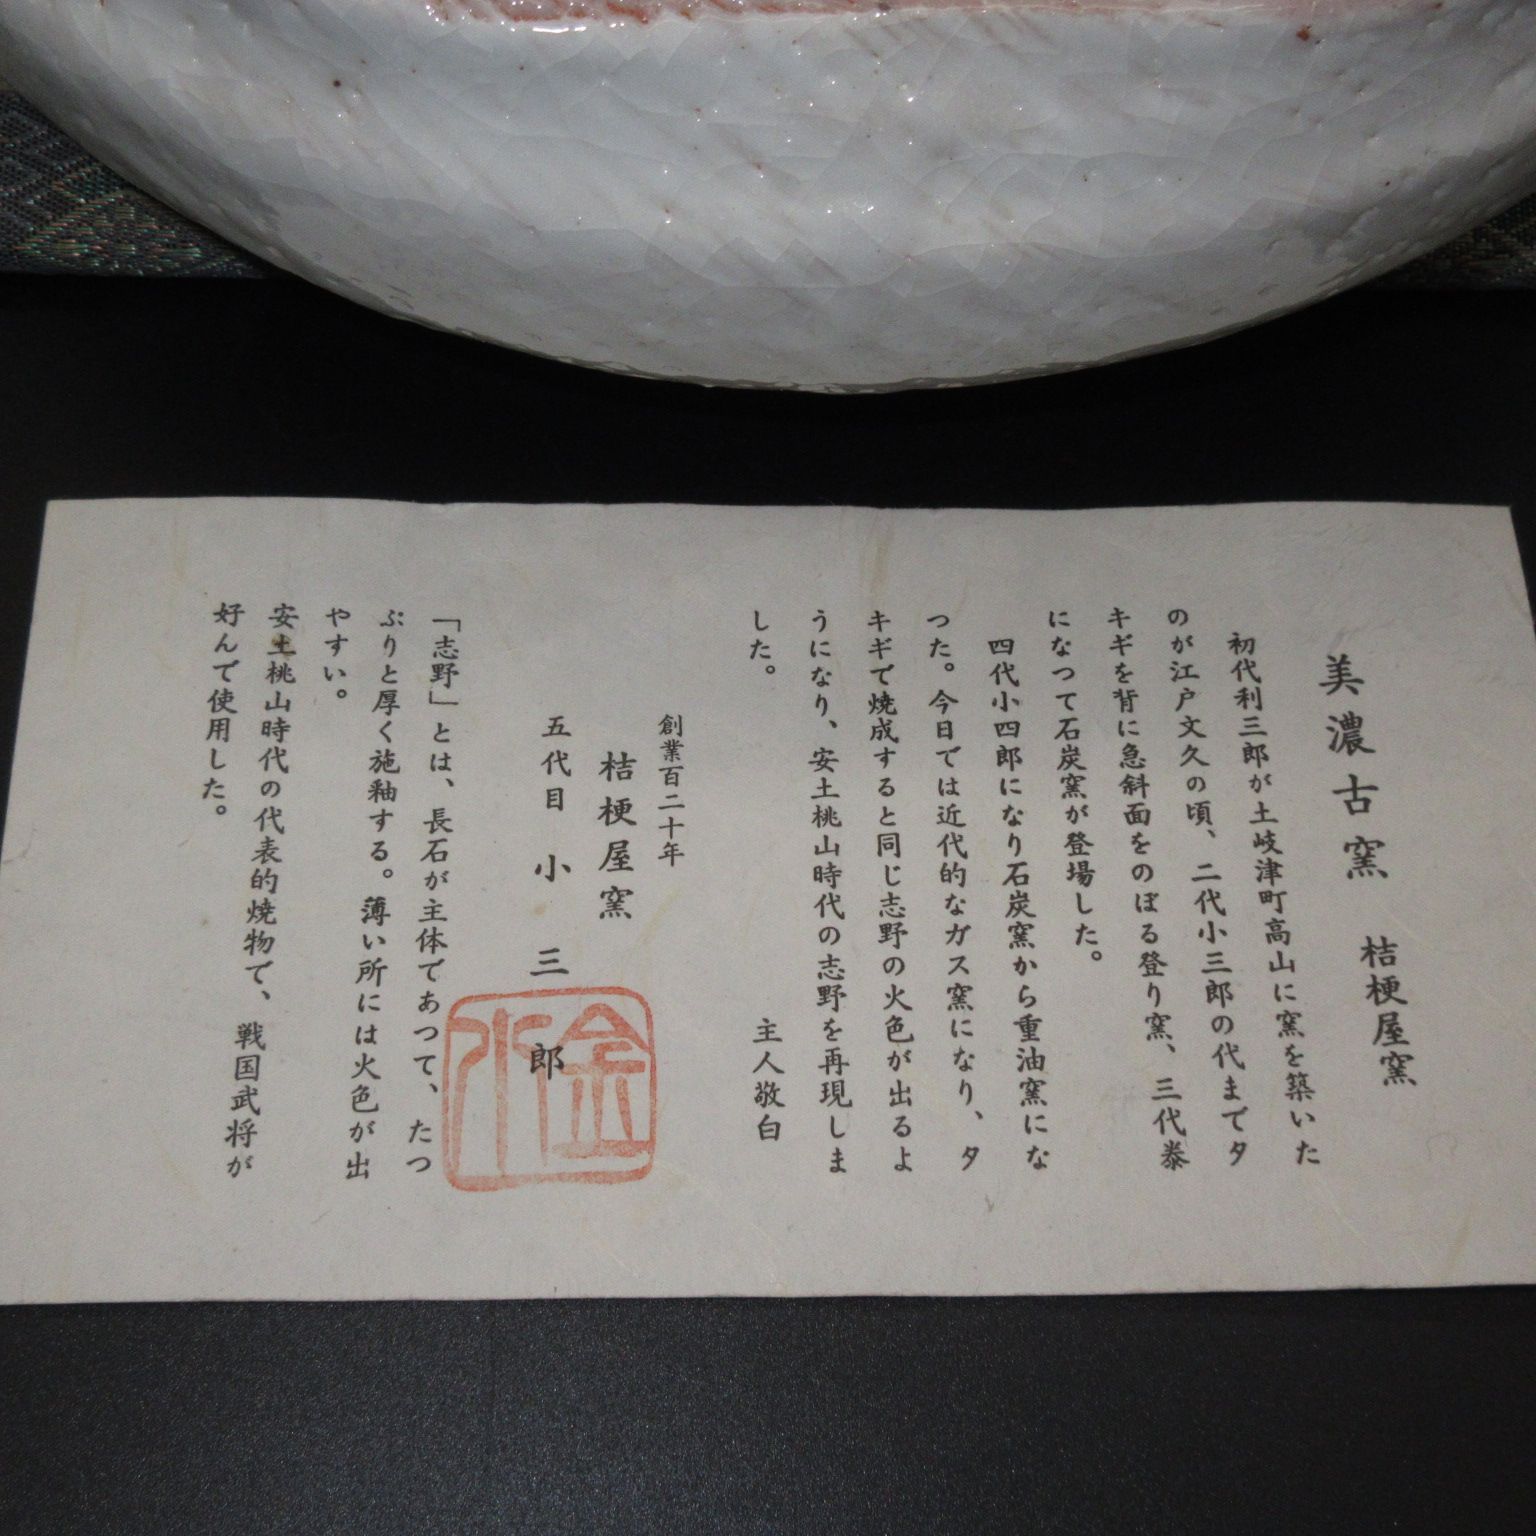 美濃古窯 桔梗屋窯
初代利三郎が土岐津町高山に窯を築いた
のが江戸文久の頃、二代小三郎の代までタ
キギを背に急斜面をのぼる登り窯、三代泰
になつて石炭窯が登場した。
四代小四郎になり石炭窯から重油窯にな
つた。今日では近代的なガス窯になり、タ
キギで焼成すると同じ志野の火色が出るよ
うになり、安土桃山時代の志野を再現しま
した。
主人敬白
創業百二十年
桔梗屋窯
五代目 小三郎
「志野」とは、長石が主体であつて、たつ
ぷりと厚く施釉する。薄い所には火色が出
やすい。
安土桃山時代の代表的焼物で、戦国武将が
好んで使用した。